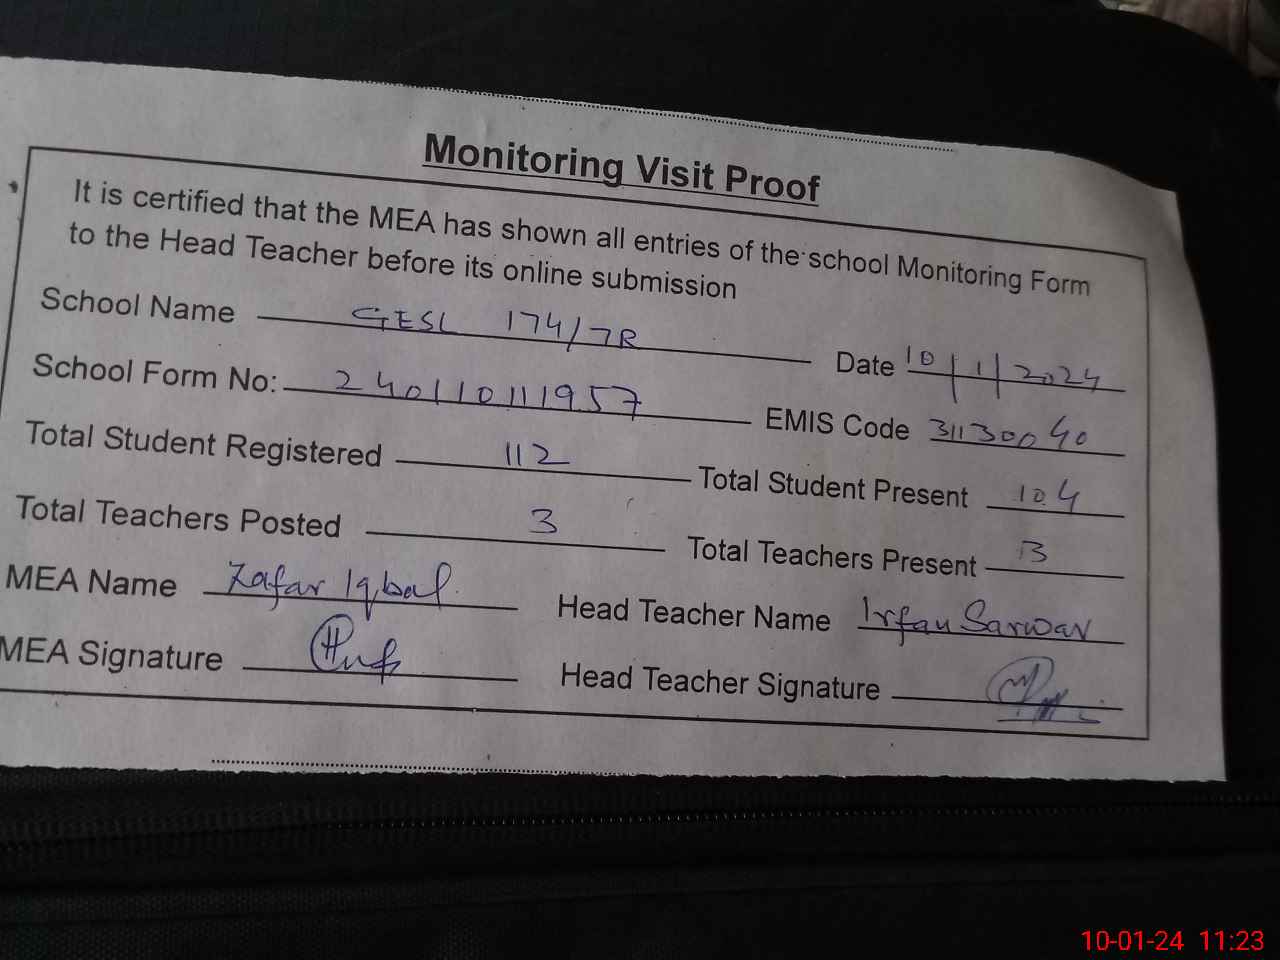 Monitoring Visit Proof
It is certified that the MEA has shown all entries of the school Monitoring Form
to the Head Teacher before its online submission
School Name GESL 174/7R Date 10/1/2024
School Form No: 240110111957 EMIS Code 31130040
Total Student Registered 112 Total Student Present 104
Total Teachers Posted 3 Total Teachers Present 3
MEA Name Zafar Iqbal Head Teacher Name Irfan Sarwar
MEA Signature Head Teacher Signature
10-01-24 11:23